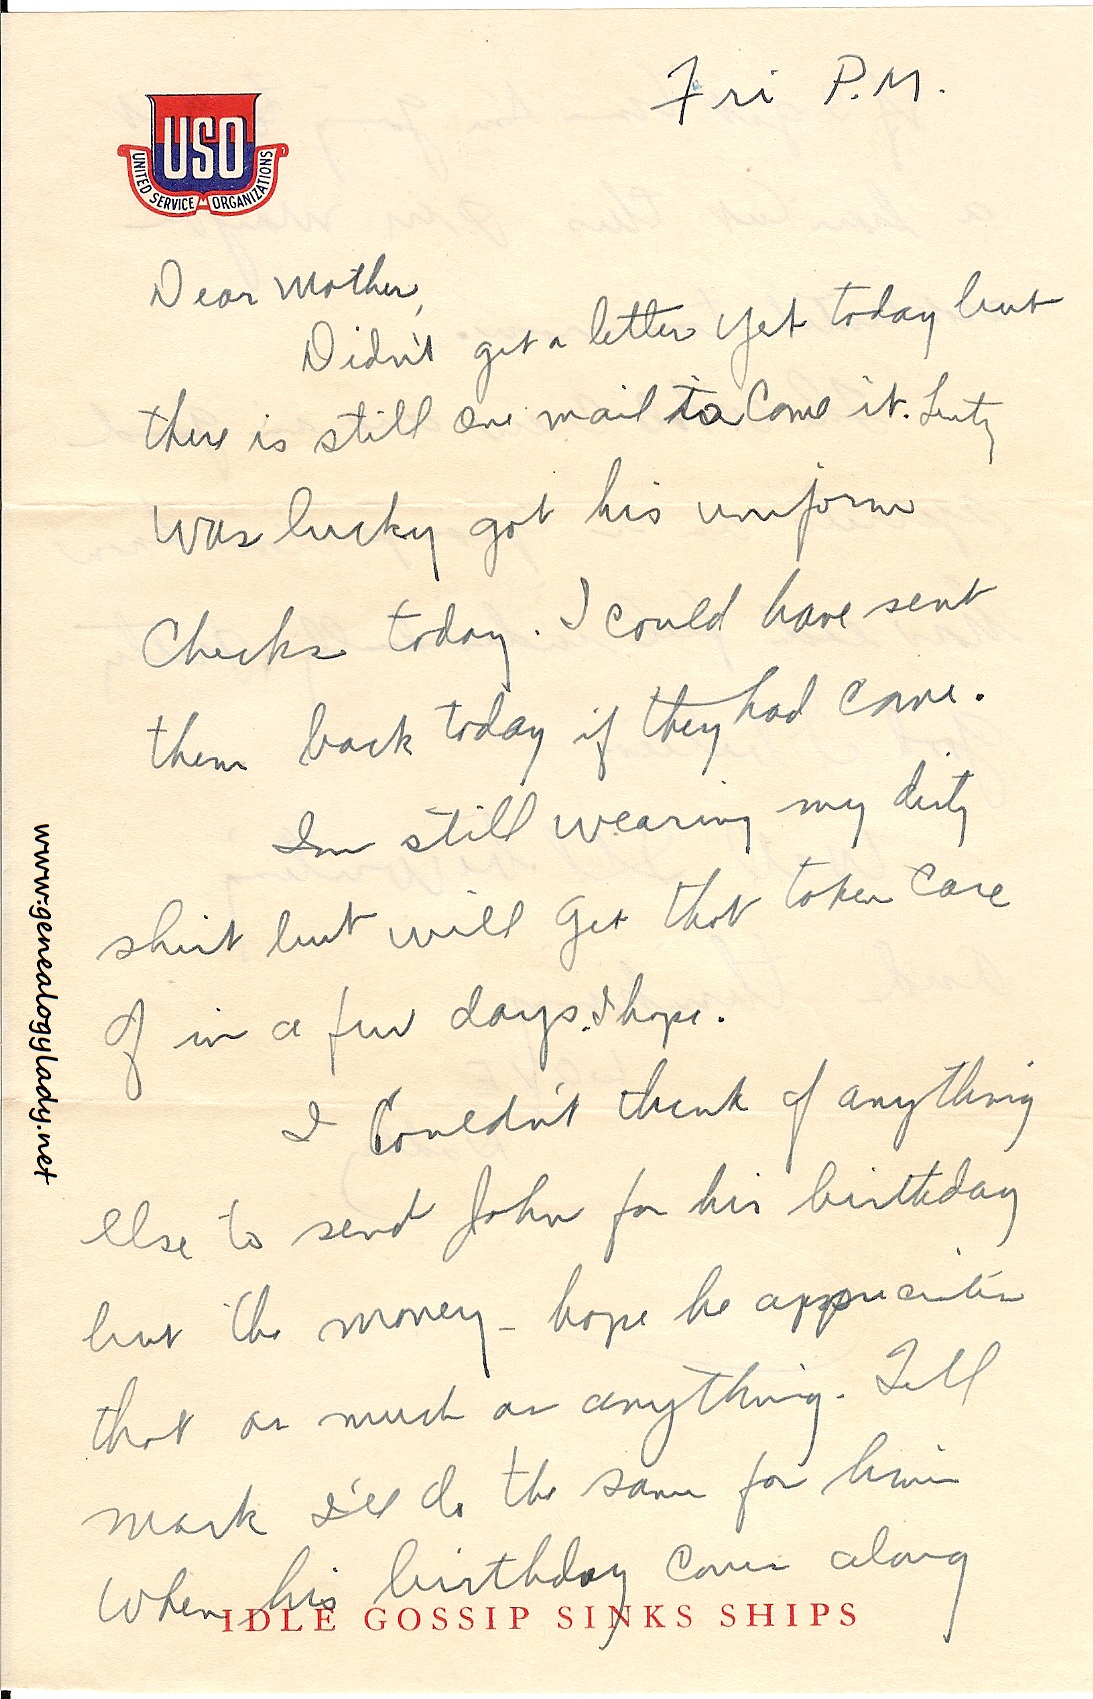 Fri P.M.
USO
UNITED SERVICE ORGANIZATIONS
Dear Mother,
Didn't get a letter yet today but
there is still one mail to come it. Lenty
was lucky got his uniform
checks today. I could have sent
them back today if they had came.
Im still wearing my dirty
shirt but will get that taken care
of in a few days. I hope.
I Couldn't think of anything
else to send John for his birthday
but the money - hope he appreciates
that as much as anything. Tell
Mark I'll do the same for him
when his birthday comes along
IDLE GOSSIP SINKS SHIPS
www.genealogylady.net